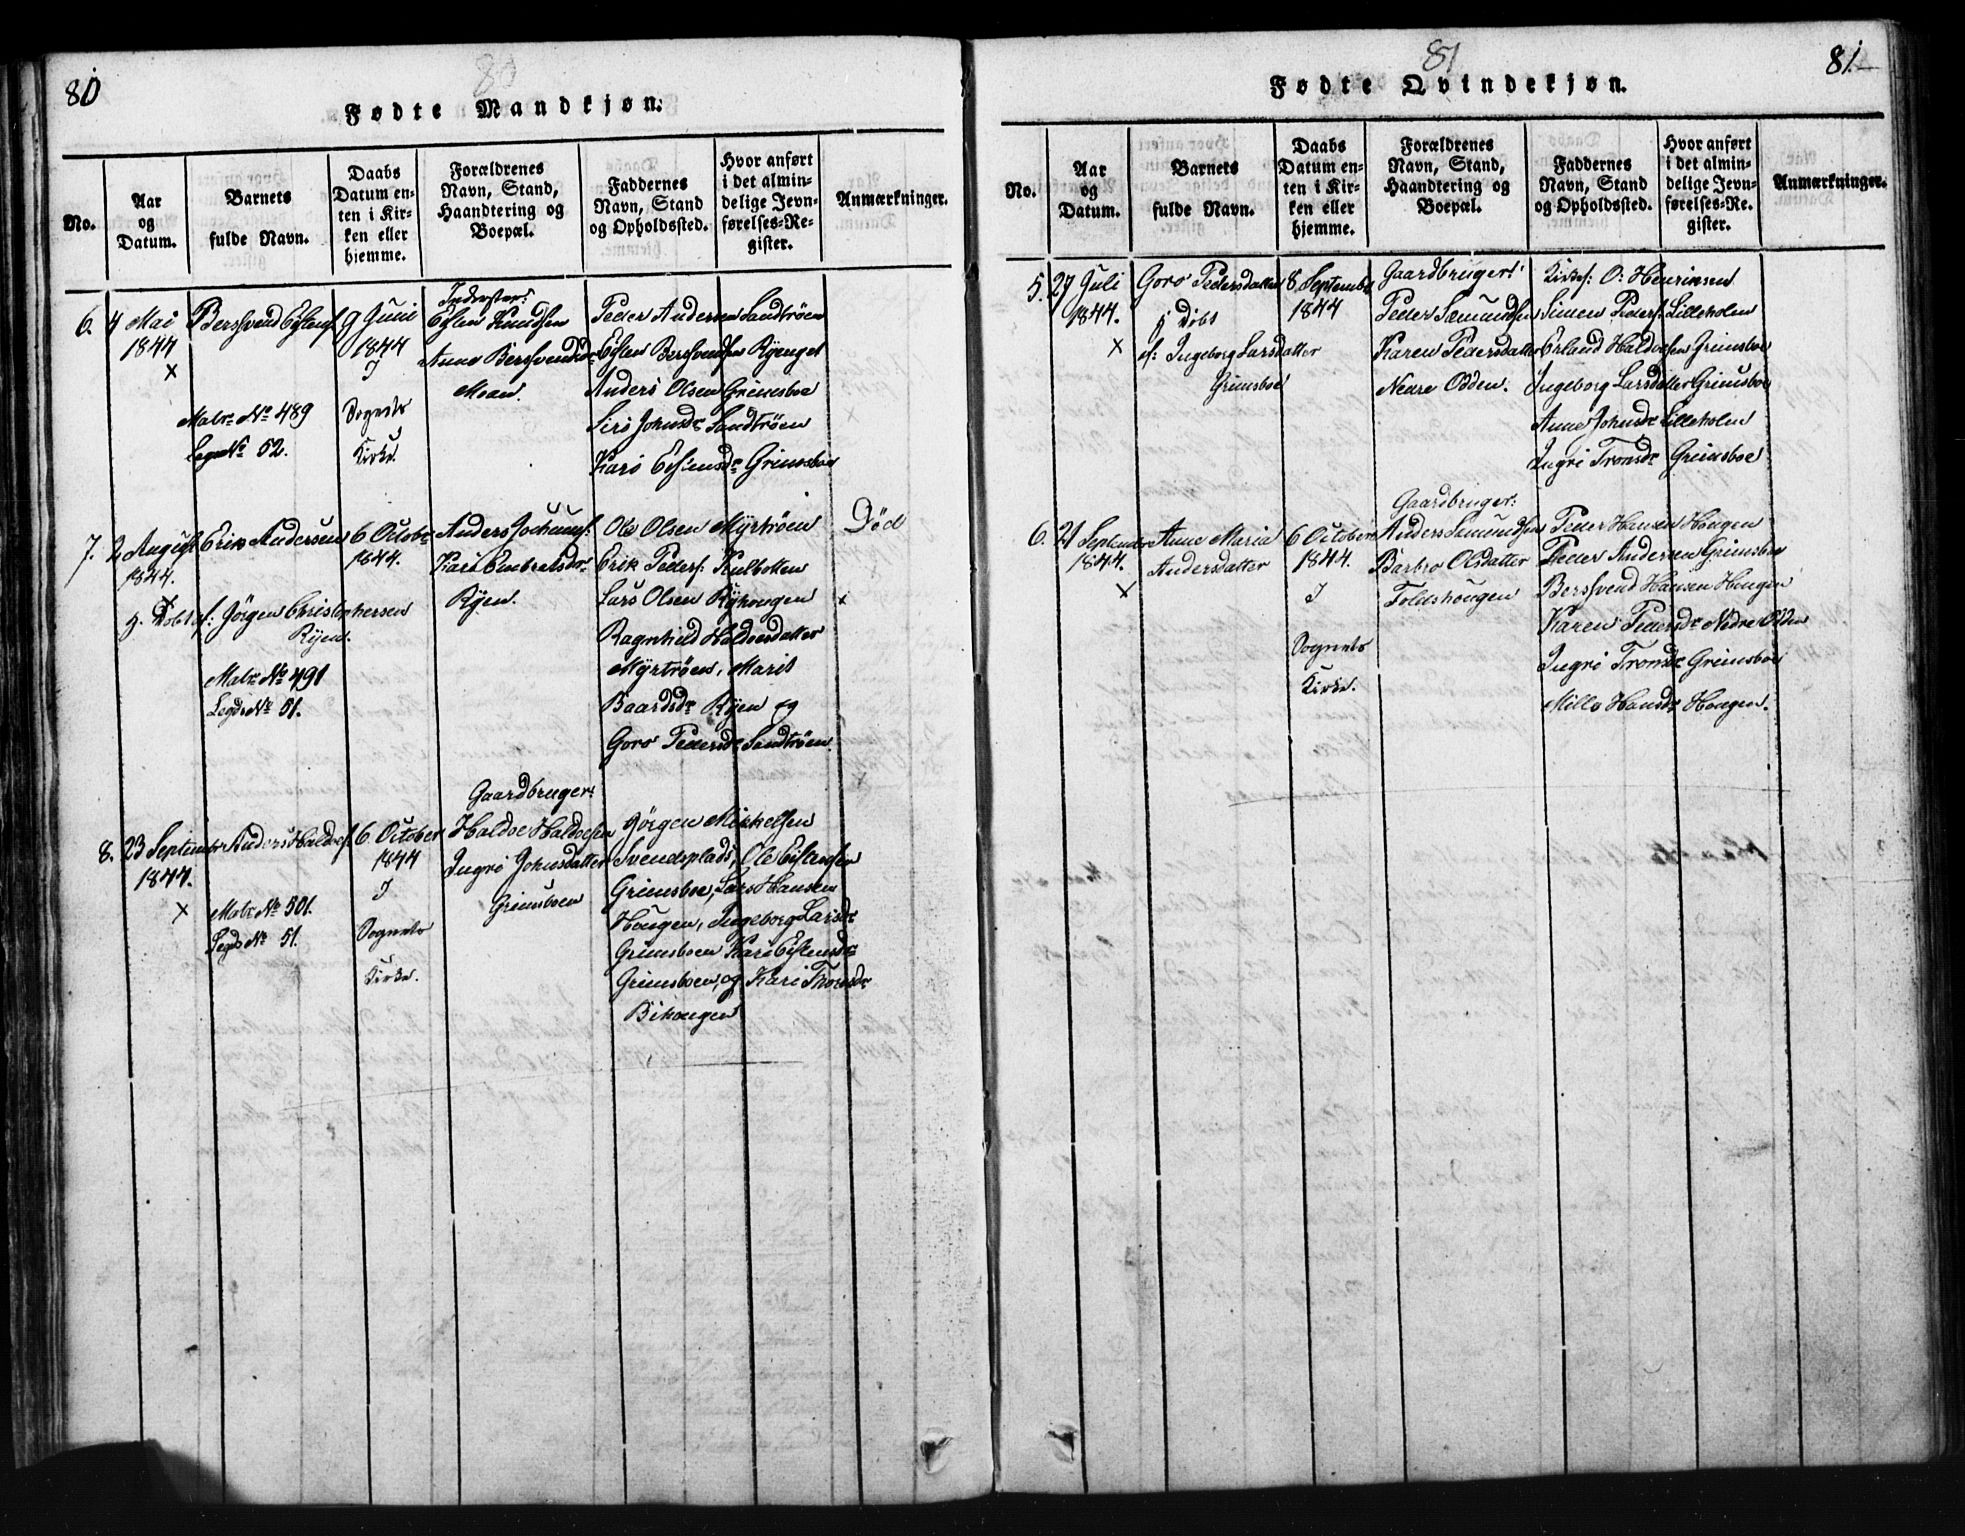 80
80
Fødte Mandkjøn.
No.
Aar
og
Datum.
Barnets
fulde Navn.
Daabs
Datum en-
ten i Kir-
ken eller
hjemme.
Forældrenes
Navn, Stand,
Haandtering og
Boepæl.
Faddernes
Navn, Stand
og Opholdssted.
Hvor anført
i det almin-
delige Jevn-
førelses-Re-
gister.
Anmærkninger.
6.
4 Mai
1844
x
Bersvend Eslens:
Matr: No 489
No 52.
9 Juni
1844
I
Sognets
Kirke.
Inderster:
Eslen Knudsen
Anne Bersvendsdr
Moan.
Peder Andersen Sandtrøen
Eslen Bersvendsen Ryenget
Anders Olsen Grimsboe
Siri Johnsdr Sandtrøen
Kari Estensdr Grimsboe
7.
2 August
1844.
x
Erik Andersen
hj. Døbt af: Jörgen Christophersen
Ryen.
Matr: No 491
Legds No 51.
6 Octobr
1844.
Anders Jochums:
Kari Embretsdr
Ryen.
Ole Olsen Myrtrøen
Erik Peders: Kulbotten
Lars Olsen Ryhougen
Ragnhild Haldoesdatter
Myrtrøen, Marit
Baardsdr Ryen og
Goro Pedersdr Sandtrøen.
Død
x
8.
23 September
1844.
x
Anders Haldoes:
Matr: No 501.
Legds No 51.
6 October
1844
I
Sognets
Kirke.
Gaardbruger:
Haldoe Haldoesen
Ingri Johnsdatter
Grimsboen
Jörgen Mikkelsen
Svendsplads, Ole Estensen
Grimsboe, Lars Hansen
Hougen, Ingeborg Larsdr
Grimsboen Kari Estensdr
Grimsboen, og Kari Thomsdr
Bekougen
81
81.
Fødte Qvindekjøn.
No.
Aar
og
Datum.
Barnets
fulde Navn.
Daabs
Datum en-
ten i Kir-
ken eller
hjemme.
Forældrenes
Navn, Stand,
Haandtering og
Boepæl.
Faddernes
Navn, Stand
og Opholdssted.
Hvor anført
i det almin-
delige Jevn-
førelses-Re-
gister.
Anmærkninger.
5.
27 Juli
1844.
x
Goro Pedersdatter
hj Döbt
af: Ingeborg Larsdatter
Grimsboe
8 September
1844
Gaardbruger:
Peder Semundsen
Karen Pedersdatter
Nedre Odden.
Kirkes: O: Henriksen
Simen Peders: Lilleholm
Erland Haldoesen Grimsboe
Ingeborg Larsdatter Grimsboe
Anne Johnsdr Lilleholm
Ingri Tronsdr Grimsboe
6.
21 September
1844.
x
Anne Maria
Andersdatter
6 October
1844.
I
Sognets
Kirke.
Gaardbruger:
Anders Semundsen
Barbro Olsdatter
Toldshougen
Peder Hansen Hougen
Peder Andersen Grimsboe
Bersvend Hansen Hougen
Karen Pedersdr Nedre Odden
Ingri Tronsdr Grimsboe
Mille Hansdr Hougen.